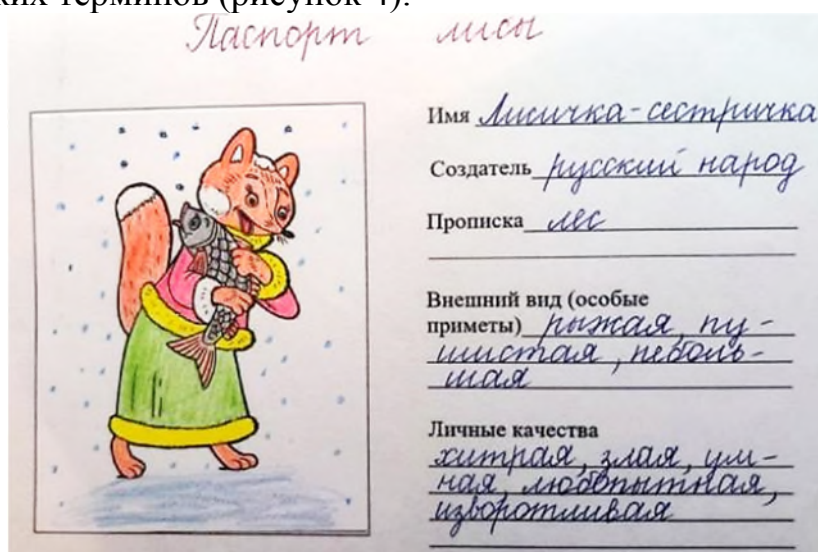 ких терминов (рисунок 4).
Паспорт лисы
Имя Лисичка-сестричка
Создатель русский народ
Прописка лес
Внешний вид (особые
приметы) рыжая, пу-
шистая, неболь-
шая
Личные качества
хитрая, злая, ум-
ная, любопытная,
изворотливая